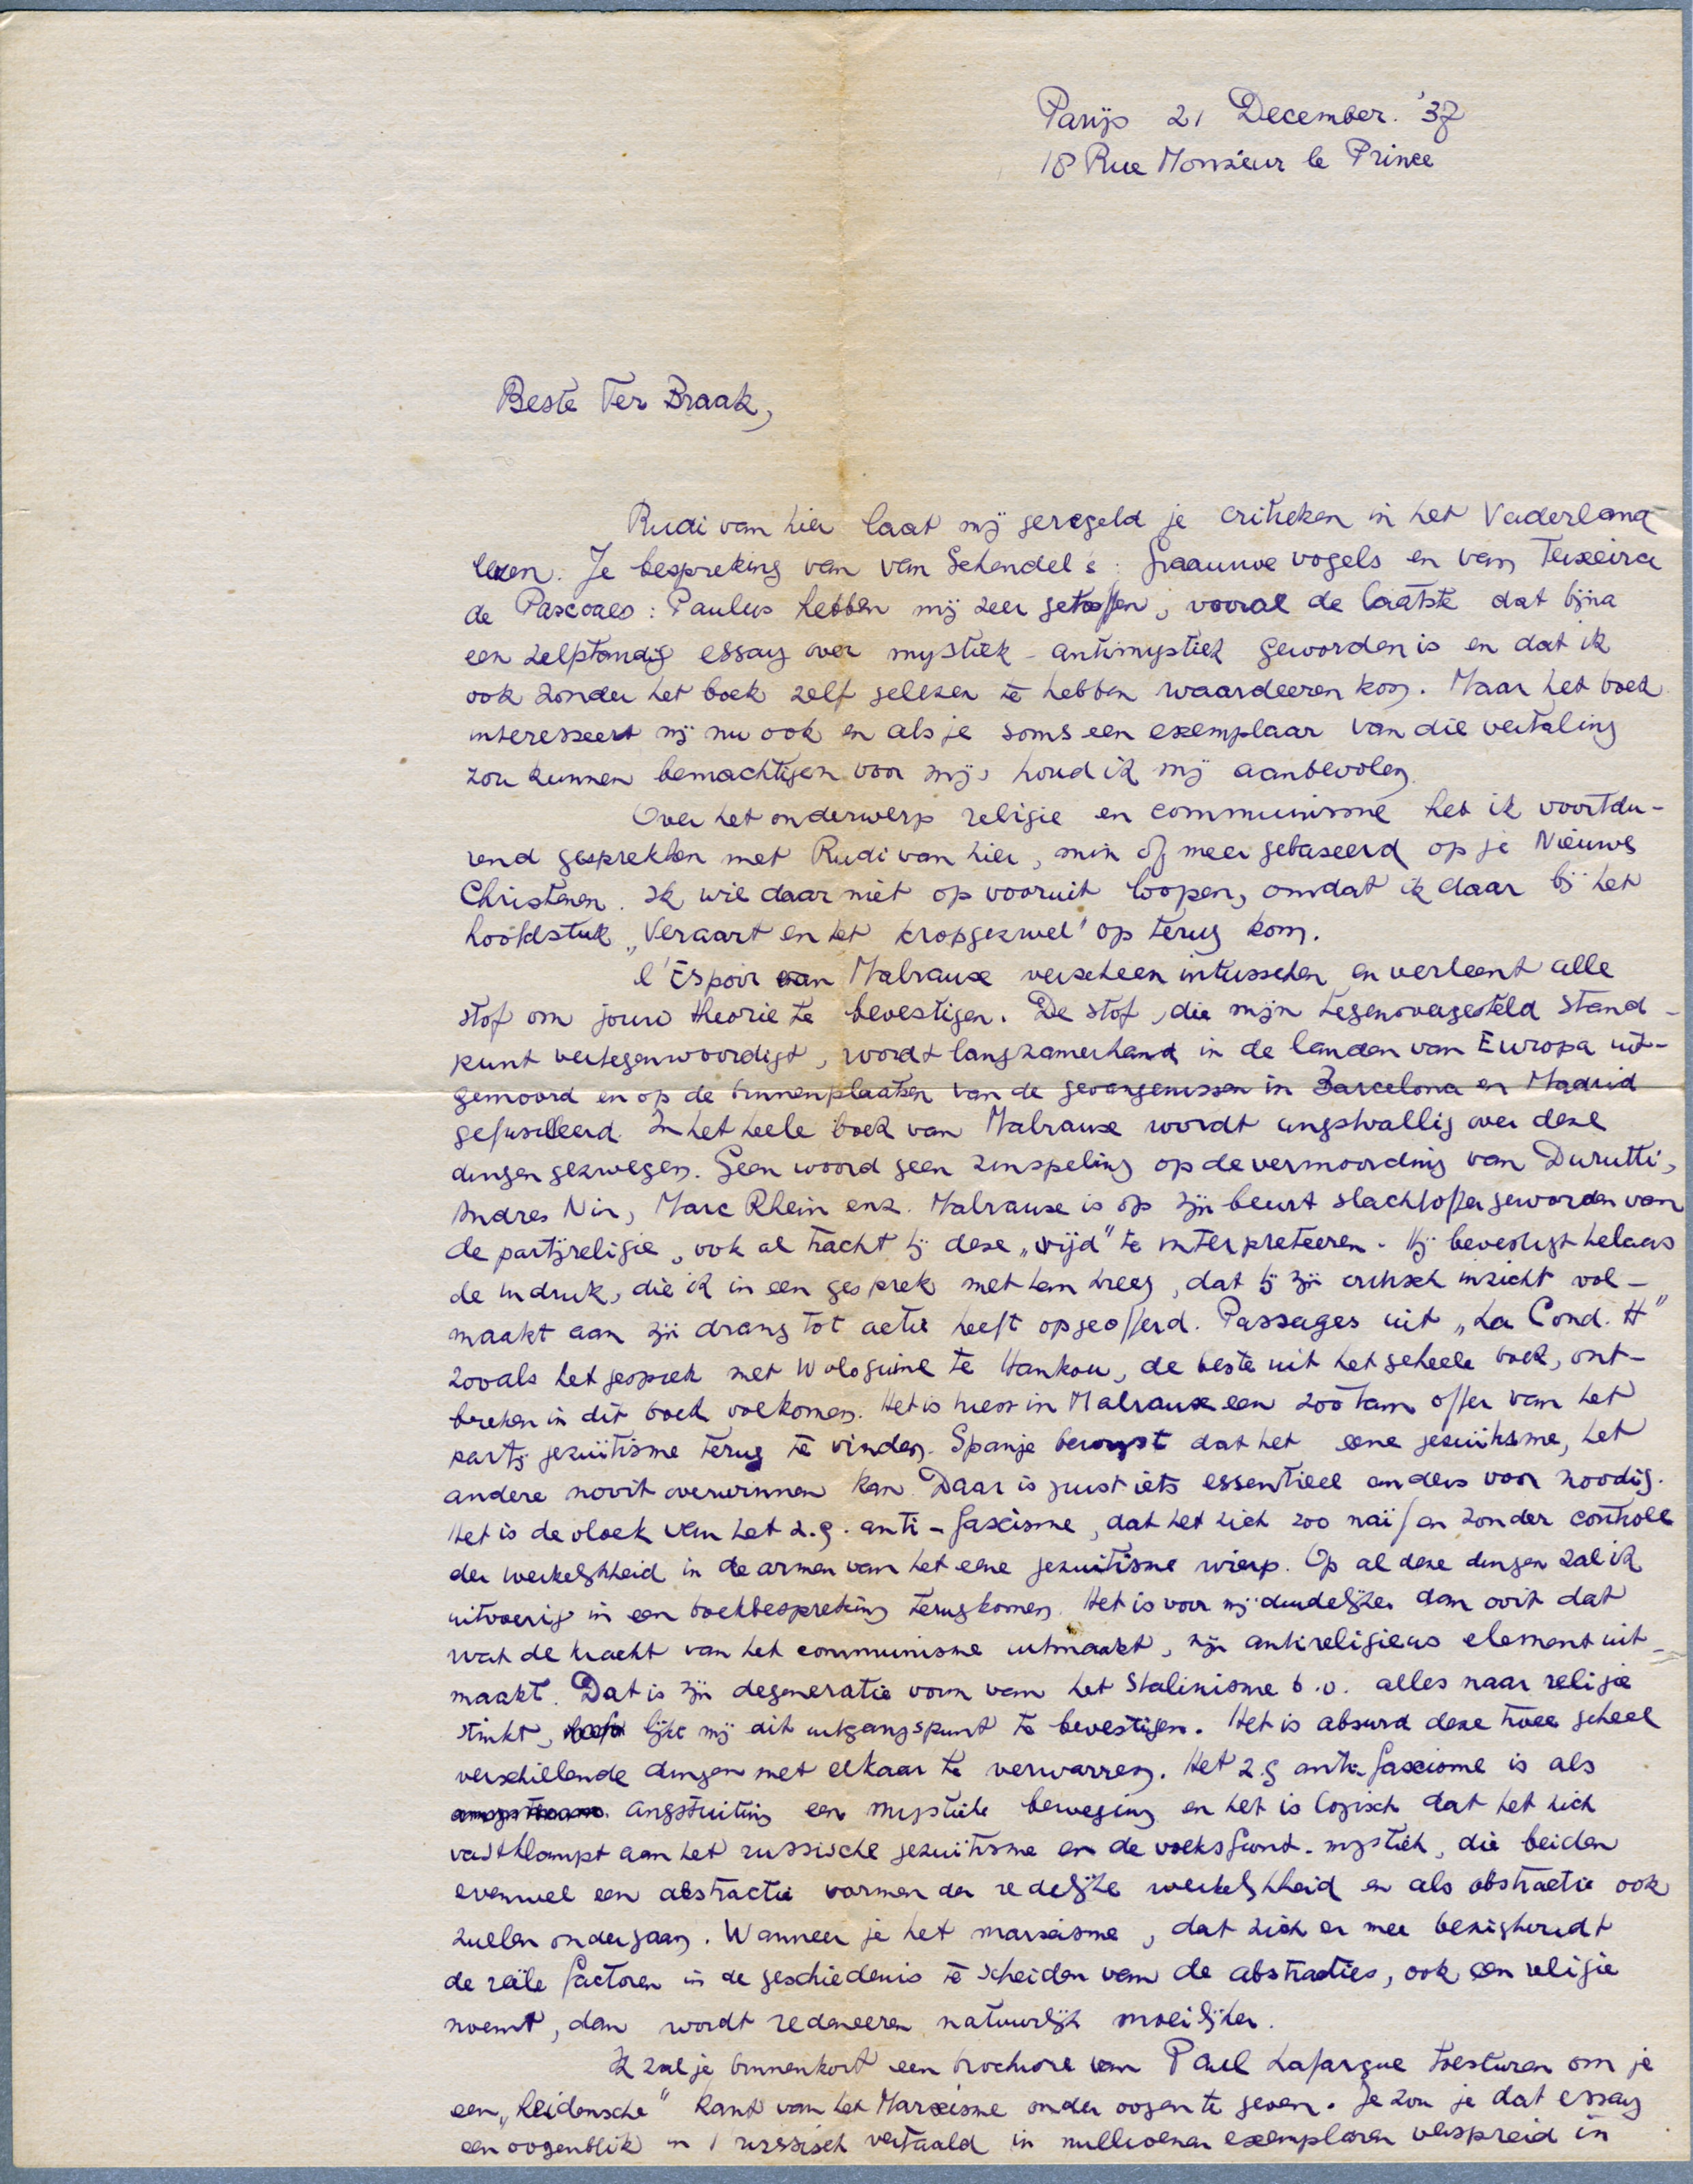 Parijs 21 December. '37
18 Rue Monsieur le Prince
Beste Ter Braak,
Rudi van hier laat mij geregeld je critieken in het Vaderland
lezen. Je bespreking van van Schendel's: Graauwe vogels en van Teixeira
de Pascoaes: Paulus hebben mij zeer getroffen, vooral de laatste dat bijna
een zelfstandig essay over mystiek - antimystiek geworden is en dat ik
ook zonder het boek zelf gelezen te hebben waardeeren kon. Maar het boek
interesseert mij nu ook en als je soms een exemplaar van die vertaling
zou kunnen bemachtigen voor mij, houd ik mij aanbevolen.
Over het onderwerp religie en communisme heb ik voortdu-
rend gesprekken met Rudi van hier, min of meer gebaseerd op je Nieuwe
Christenen. Ik wil daar niet op vooruit loopen, omdat ik daar bij het
hoofdstuk „Veraart en het kropgezwel" op terug kom.
l'Espoir van Malraux verscheen intusschen en verleent alle
stof om jouw theorie te bevestigen. De stof, die mijn tegenovergesteld stand-
punt vertegenwoordigt, wordt langzamerhand in de landen van Europa uit-
gemoord en op de binnenplaatsen van de gevangenissen in Barcelona en Madrid
gefusilleerd. In het heele boek van Malraux wordt angstvallig over deze
dingen gezwegen. Geen woord geen zinspeling op de vermoording van Durutti,
Andres Nin, Marc Rhein enz. Malraux is op zijn beurt slachtoffer geworden van
de partijreligie, ook al tracht hij deze „vrijd" te interpreteeren. Hij bevestigt helaas
de indruk, die ik in een gesprek met hem kreeg, dat hij zijn critisch inzicht vol-
maakt aan zijn drang tot actie heeft opgeofferd. Passages uit „La Cond. H"
zooals het gesprek met Wologuine te Hankou, de beste uit het geheele boek, ont-
breken in dit boek volkomen. Het is triest in Malraux een zoo tam offer van het
partij jezuïtisme terug te vinden. Spanje bewijst dat het eene jezuïtisme, het
andere nooit overwinnen kan. Daar is juist iets essentieel anders voor noodig.
Het is de vloek van het z.g. anti-fascisme, dat het zich zoo naïf en zonder controle
der werkelijkheid in de armen van het eene jezuitisme wierp. Op al deze dingen zal ik
uitvoerig in een boekbespreking terugkomen. Het is voor mij duidelijker dan ooit dat
wat de kracht van het communisme uitmaakt, zijn antireligieus element uit-
maakt. Dat is zijn degeneratie vorm van het Stalinisme b.v. alles naar religie
stinkt, lijkt mij dit uitgangspunt te bevestigen. Het is absurd deze twee geheel
verschillende dingen met elkaar te verwarren. Het z.g anti-fascisme is als
angstuiting een mystieke beweging en het is logisch dat het zich
vastklampt aan het russische jezuïtisme en de volksfront-mystiek, die beiden
evenwel een abstractie vormen der redelijke werkelijkheid en als abstractie ook
zullen ondergaan. Wanneer je het marxisme, dat zich er mee bezighoudt
de reële factoren in de geschiedenis te scheiden van de abstracties, ook een religie
noemt, dan wordt redeneeren natuurlijk moeilijker.
Ik zal je binnenkort een brochure van Paul Lafargue toesturen om je
een „heidensche" kant van het Marxisme onder oogen te geven. Je zou je dat essay
een oogenblik in 't russisch vertaald in millioenen exemplaren verspreid in